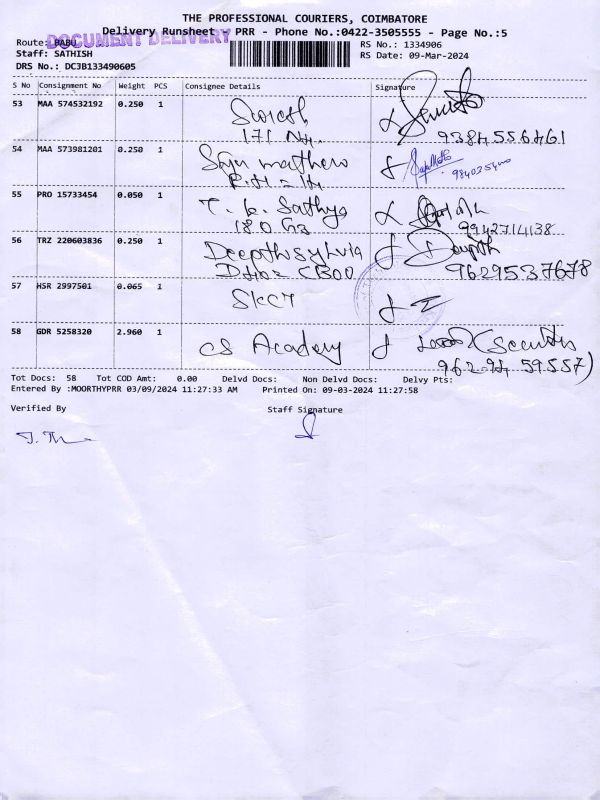 THE PROFESSIONAL COURIERS, COIMBATORE
Delivery Runsheet - PRR - Phone No.:0422-3505555 - Page No.:5
Route: BABU
DOCUMENT DELIVERY
RS No.: 1334906
Staff: SATHISH
RS Date: 09-Mar-2024
DRS No.: DCJB133490605
S No Consignment No Weight PCS Consignee Details Signature
53 MAA 574532192 0.250 1
171
9384556461
54 MAA 573981201 0.250 1
55 PRO 15733454 0.050 1 T. K. Sathya
180 9942714138
56 TRZ 220603836 0.250 1 Deepthisylvia
9629537678
57 HSR 2997501 0.065 1 SKCT
58 GDR 5258320 2.960 1 CS Academy
Tot Docs: 58 Tot COD Amt: 0.00 Delvd Docs: Non Delvd Docs: Delvy Pts:
Entered By :MOORTHYPRR 03/09/2024 11:27:33 AM Printed On: 09-03-2024 11:27:58
Verified By Staff Signature